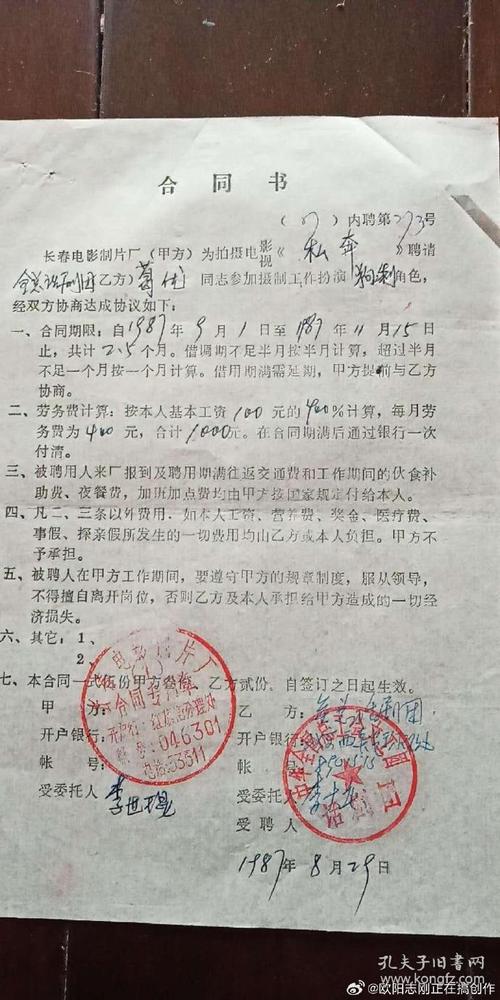 合同书
(87)内聘第273号
长春电影制片厂(甲方)为拍摄电影视《私奔》聘请
全总话剧团乙方)葛优同志参加摄制工作扮演角色,
经双方协商达成协议如下:
一、合同期限:自1987年9月1日至1987年11月15日
止,共计2.5个月。借调期不足半月按半月计算,超过半月
不足一个月按一个月计算。借用期满需延期,甲方提前与乙方
协商。
二、劳务费计算:按本人基本工资100元的400%计算,每月劳
务费为400元,合计1000元。在合同期满后通过银行一次
付清。
三、被聘用人来厂报到及聘用期满往返交通费和工作期间的伙食补
助费、夜餐费,加班加点费均由甲方按国家规定付给本人。
四、凡二、三条以外费用,如本人工资、营养费、奖金、医疗费、
事假、探亲假所发生的一切费用均由乙方或本人负担。甲方不
予承担。
五、被聘人在甲方工作期间,要遵守甲方的规章制度,服从领导,
不得擅自离开岗位,否则乙方及本人承担给甲方造成的一切经
济损失。
六、其它:1、
2、
七、本合同一式伍份甲方叁份,乙方贰份,自签订之日起生效。
甲方:
开户银行:
帐号:
受委托人
电影制片厂
合同专用章
开户行:红旗街办理处
帐号:046301
电话:53511
乙方:全总话剧团
开户银行:
帐号:
受委托人
受聘人
中华全国总工会
话剧团
1987年8月29日
孔夫子旧书网
kongfz.com
@欧阳志刚正在搞创作